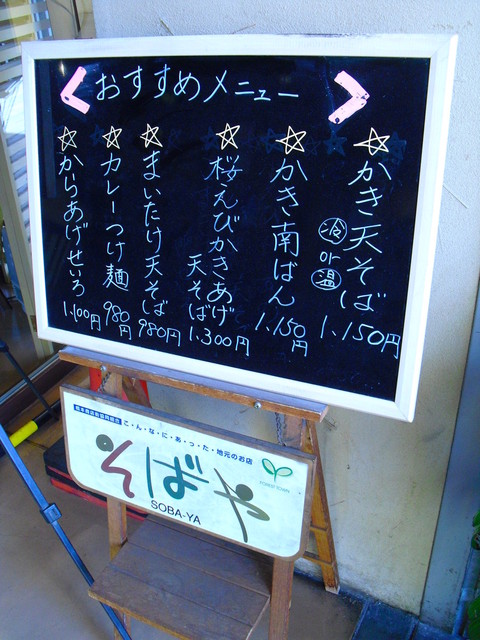 おすすめメニュー
かき天そば
冷or温
1.150円
かき南ばん
1.150円
桜えびかきあげ
天そば
1.300円
まいたけ天そば
980円
カレーつけ麺
980円
からあげせいろ
1.100円
こ・ん・な・に・あ・っ・た・地元のお店
そばや
SOBA-YA